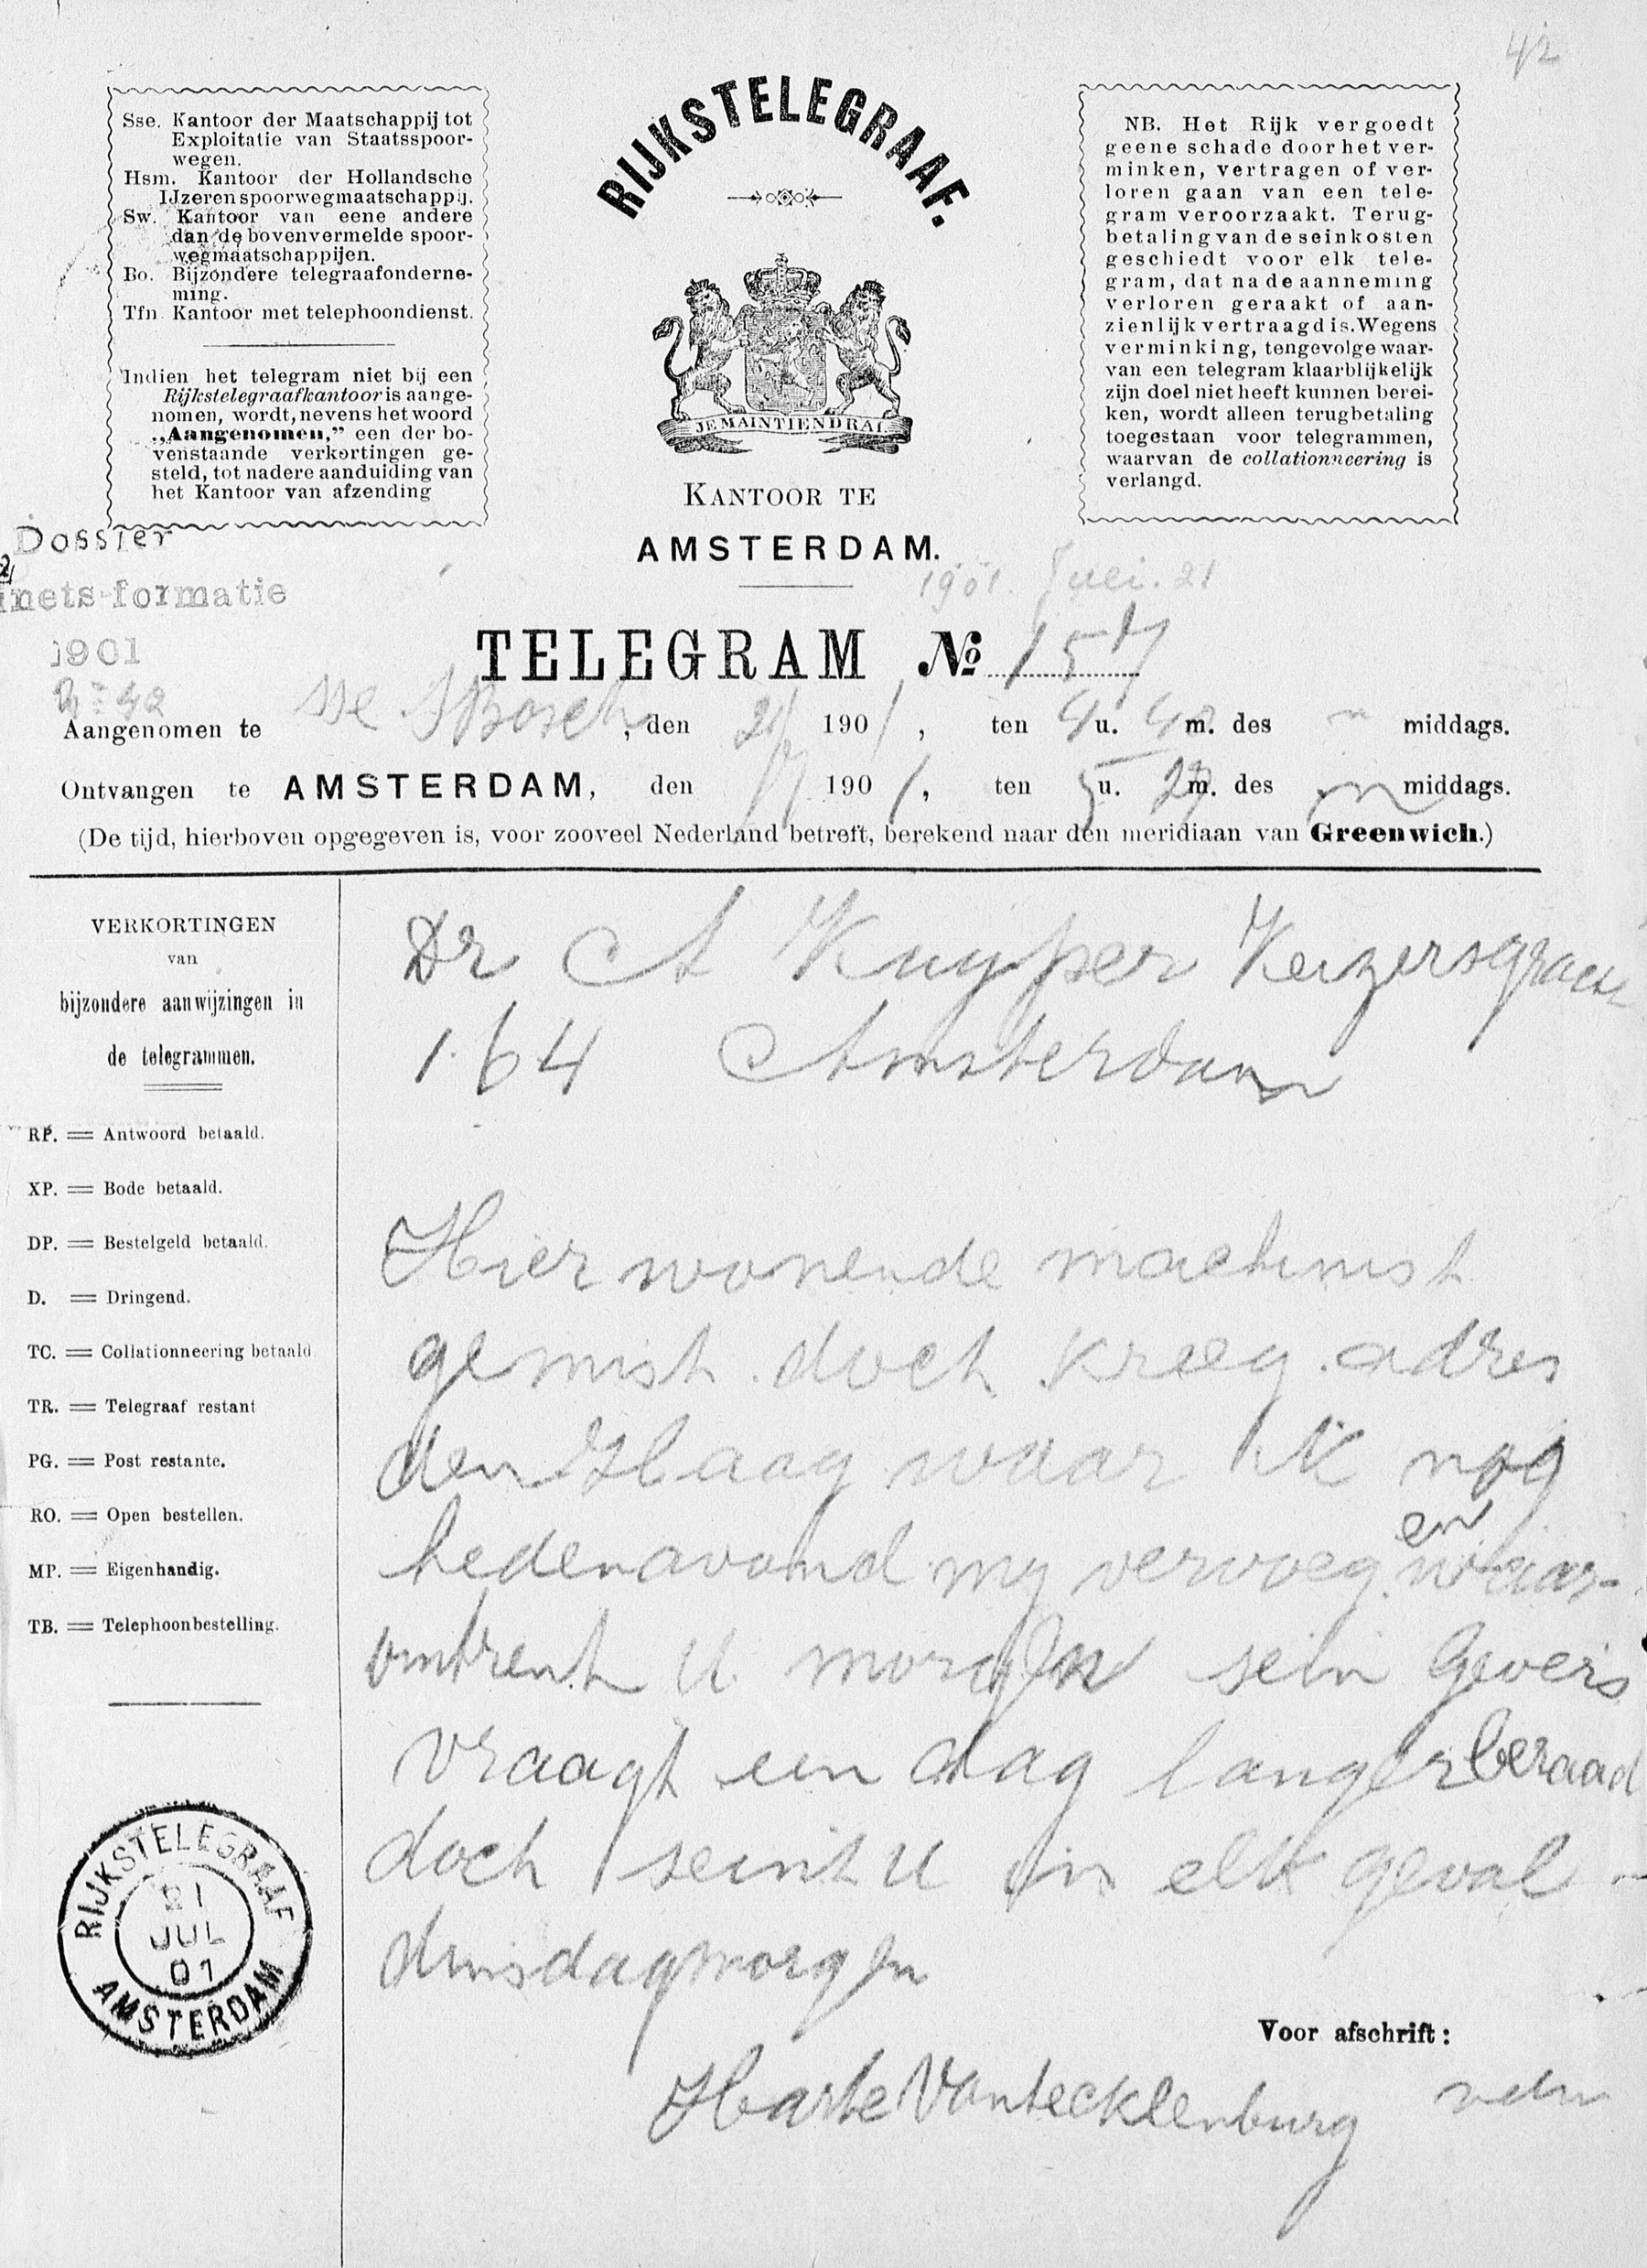 42
Sse. Kantoor der Maatschappij tot
Exploitatie van Staatsspoor-
wegen.
Hsm. Kantoor der Hollandsche
IJzeren spoorwegmaatschappij.
Sw. Kantoor van eene andere
dan de bovenvermelde spoor-
wegmaatschappijen.
Bo. Bijzondere telegraafonderne-
ming.
Tfn Kantoor met telephoondienst.
Indien het telegram niet bij een
Rijkstelegraafkantoor is aange-
nomen, wordt, nevens het woord
„Aangenomen,” een der bo-
venstaande verkortingen ge-
steld, tot nadere aanduiding van
het Kantoor van afzending
RIJKSTELEGRAAF.
JE MAINTIENDRAI
KANTOOR TE
AMSTERDAM.
NB. Het Rijk vergoedt
geene schade door het ver-
minken, vertragen of ver-
loren gaan van een tele-
gram veroorzaakt. Terug-
betaling van de seinkosten
geschiedt voor elk tele-
gram, dat na de aanneming
verloren geraakt of aan-
zienlijk vertraagd is. Wegens
verminking, tengevolge waar-
van een telegram klaarblijkelijk
zijn doel niet heeft kunnen berei-
ken, wordt alleen terugbetaling
toegestaan voor telegrammen,
waarvan de collationneering is
verlangd.
Dossier
inets-formatie
1901
No 42
1901. Juli. 21
TELEGRAM No 157
Aangenomen te sse sBosch, den 21/7 1901, ten 4 u. 42 m. des n middags.
Ontvangen te AMSTERDAM, den /7 1901, ten 5 u. 27 m. des n middags.
(De tijd, hierboven opgegeven is, voor zooveel Nederland betreft, berekend naar den meridiaan van Greenwich.)
VERKORTINGEN
van
bijzondere aanwijzingen in
de telegrammen.
RP. = Antwoord betaald.
XP. = Bode betaald.
DP. = Bestelgeld betaald.
D. = Dringend.
TC. = Collationneering betaald.
TR. = Telegraaf restant
PG. = Post restante.
RO. = Open bestellen.
MP. = Eigenhandig.
TB. = Telephoonbestelling.
RIJKSTELEGRAAF
21
JUL
01
AMSTERDAM
Dr A Kuyper Keizersgracht
164 Amsterdam
Hier wonende machinist
gemist doch kreeg adres
den Haag waar ik nog
hedenavond my vervoeg en waar-
omtrent U morgen sein Gevers
vraagt een dag langer beraad
doch seint U in elk geval
dinsdagmorgen
Voor afschrift:
Harte Van tecklenburg